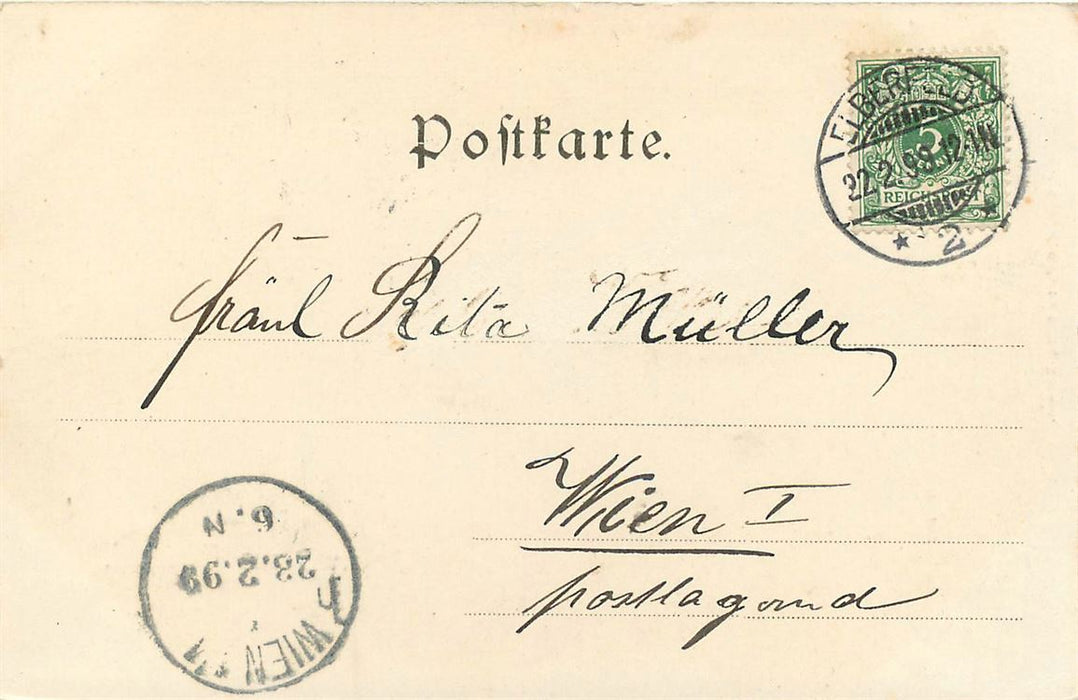 Postkarte.
ELBERFELD
22.2.99.12-1N.
* 2 *
5
REICHSPOST
Fräul Rita Müller
Wien I
postlagernd
6. N
23.2.99
WIEN 1/1